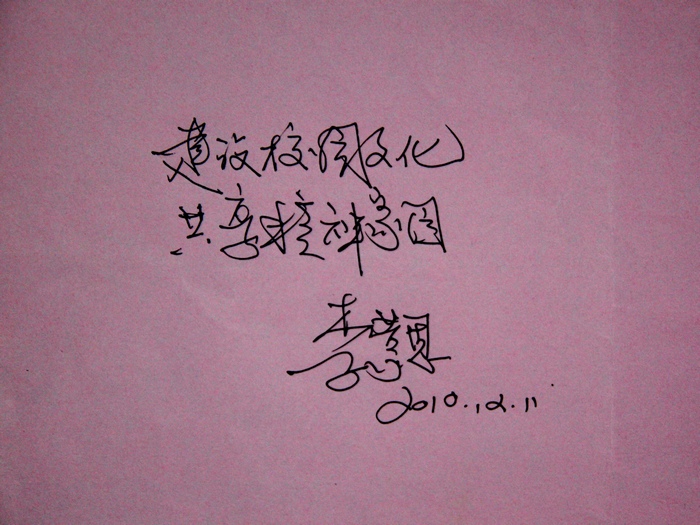 建设校园文化
共享精神家园
李
2010.12.11